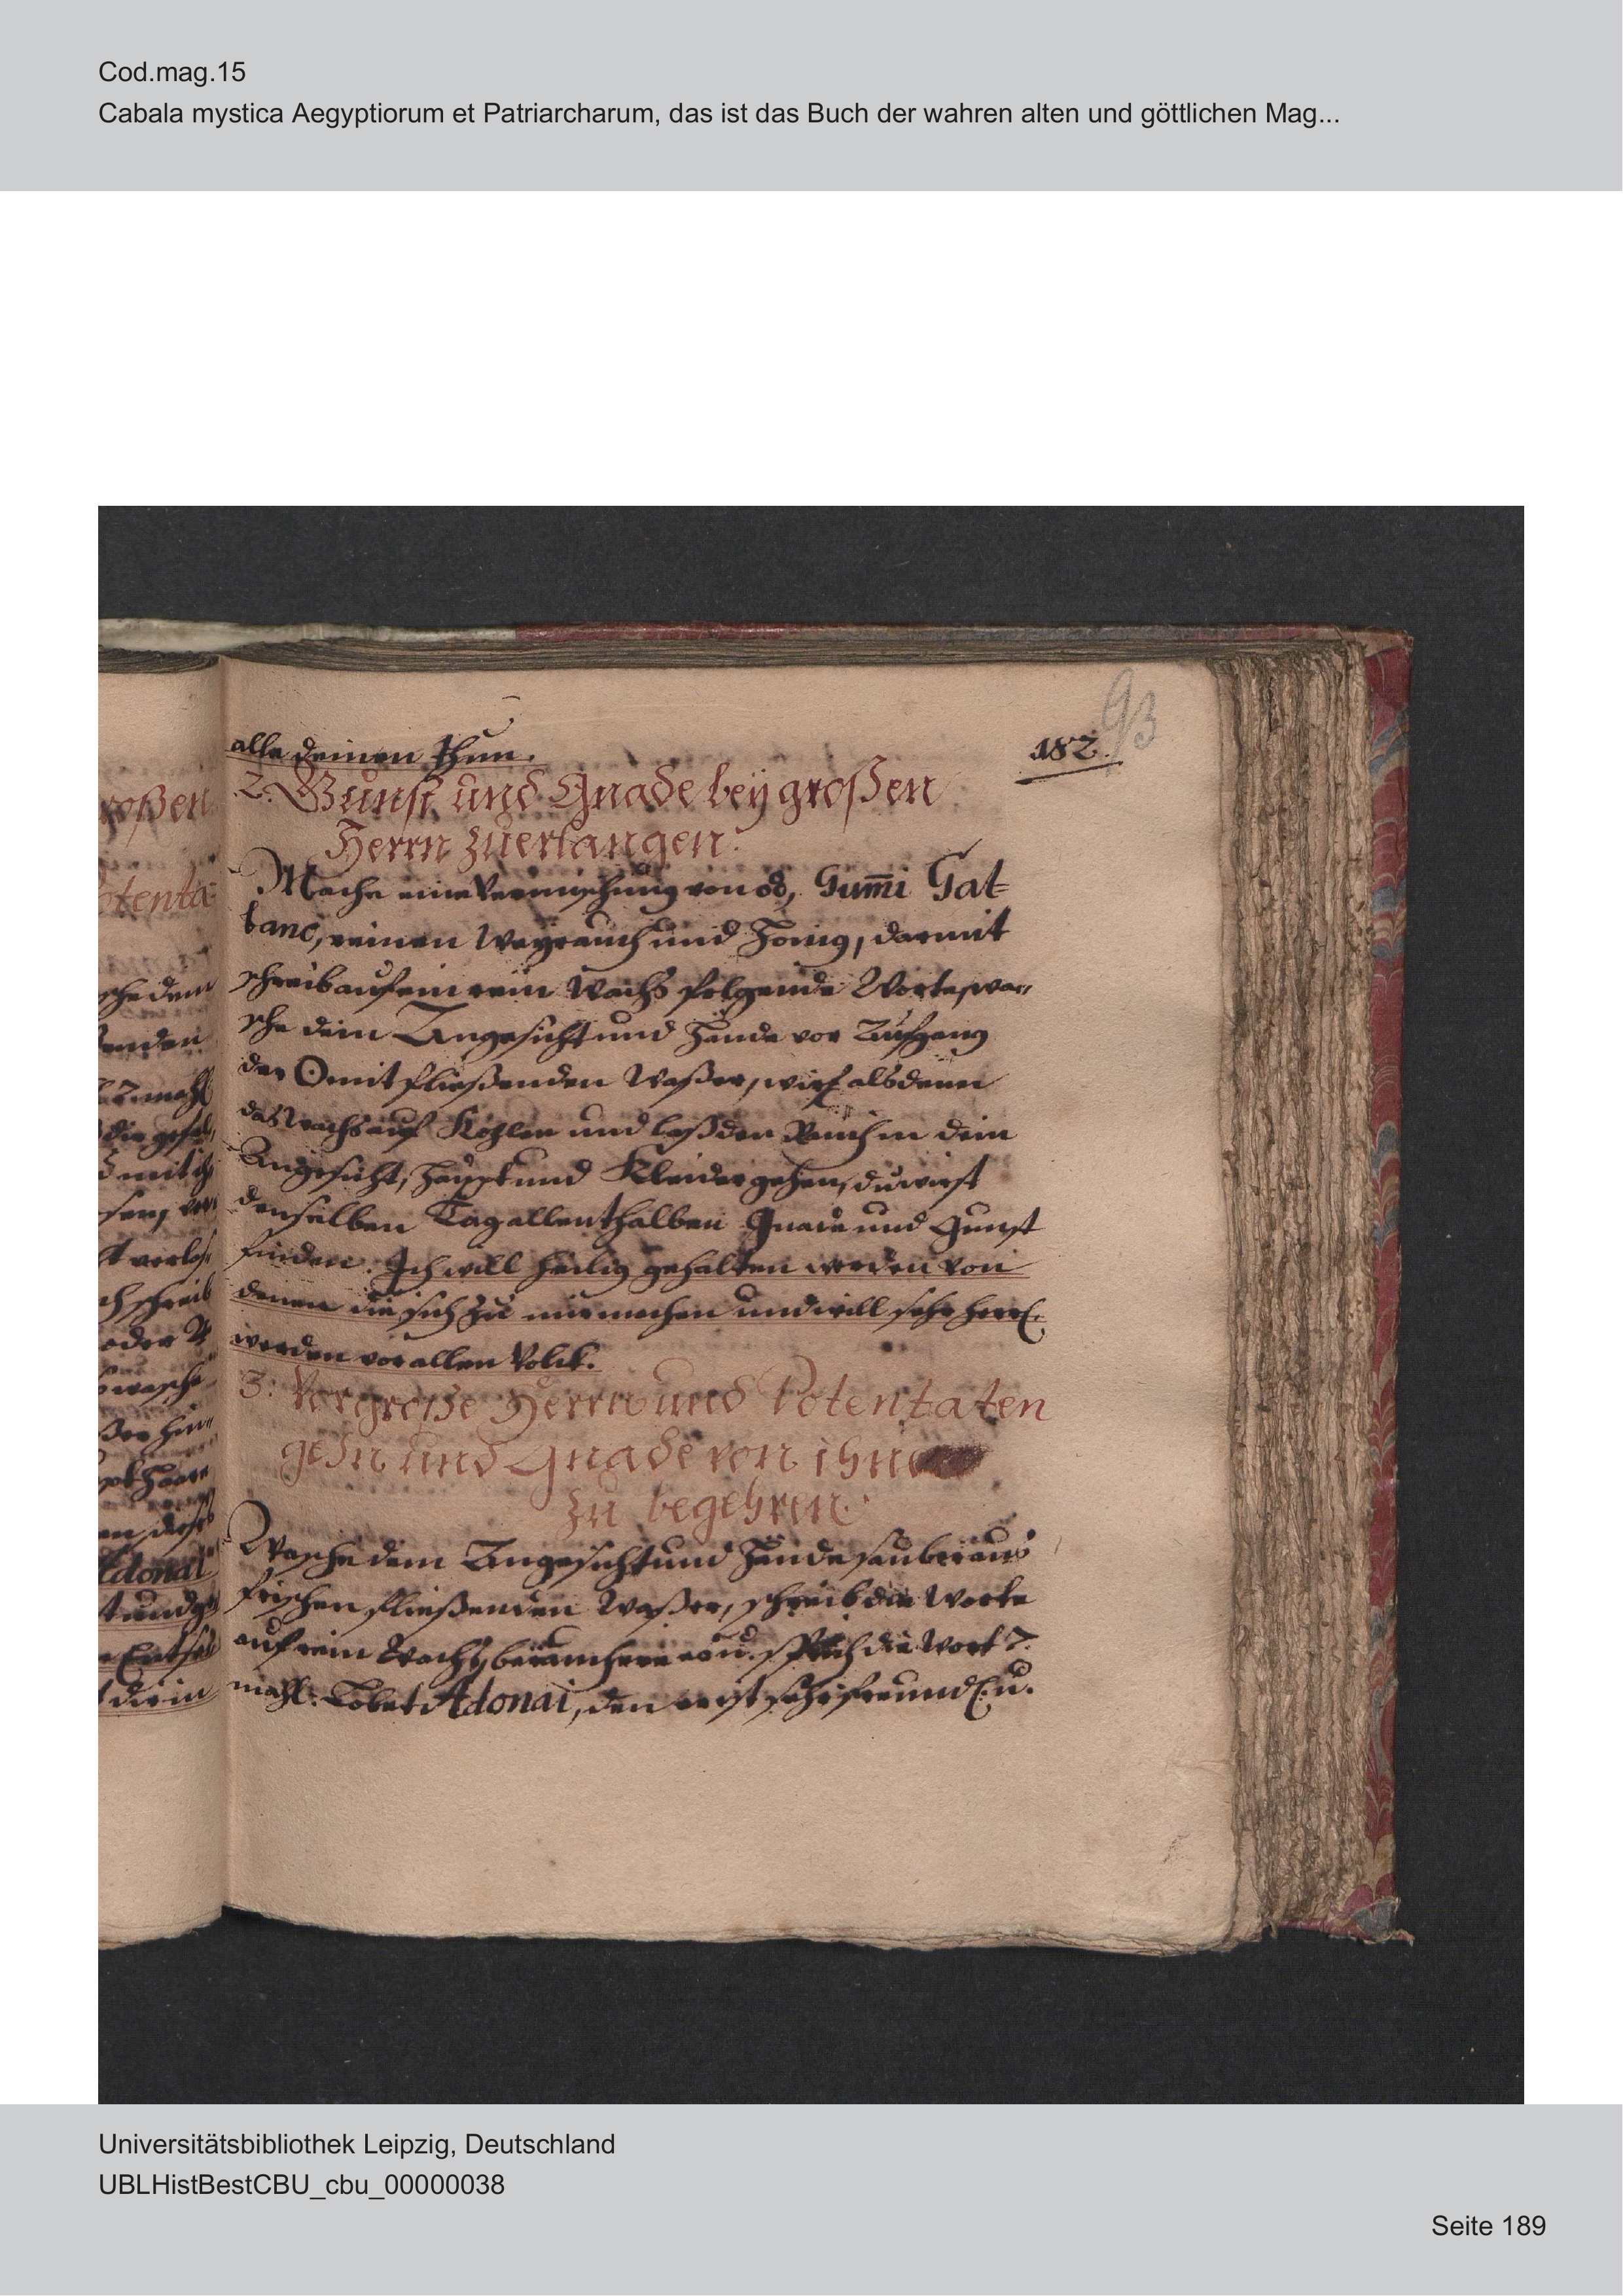 Cod.mag.15
Cabala mystica Aegyptiorum et Patriarcharum, das ist das Buch der wahren alten und göttlichen Mag...
93
182.
alle deinen Thun.
2. Gunst und Gnade beÿ großen
Herrn zuerlangen:
Mache eine Vermischung von Gum̃i Gal=
bano, reinen Weyrauch und Honig, darmit
schreib auf ein rein Wachs folgende Worte, wa„
sche dein Angesicht und Hände vor Aufgang
der ☉ mit fließenden Waßer, wirf alsdenn
das Wachs auf Kohlen und laß den Rauch in dein
Angesicht, Haupt und Kleider gehen, du wirst
denselben Tag allenthalben Gnade und Gunst
finden. Ich will heilig gehalten werden von
denen die sich zu mir machen und will sehr herrl.
werden vor allen Volck.
3. Vor große Herrn und Potentaten
gehn und Gnade von ihnen
zu begehren.
Wasche dein Angesicht und Hände sauber aus
frischen fließenden Waßer, schreib die Worte
auf rein Wachs, beräuchere u. sprich die Wort 7.
mahl: Lobet Adonai, den er ist sehr freundl. u.
roßen
otenta-
sche dem
ßenden
mahl
die
mit
schreib
oder
wasche
Adonai
Universitätsbibliothek Leipzig, Deutschland
UBLHistBestCBU_cbu_00000038
Seite 189